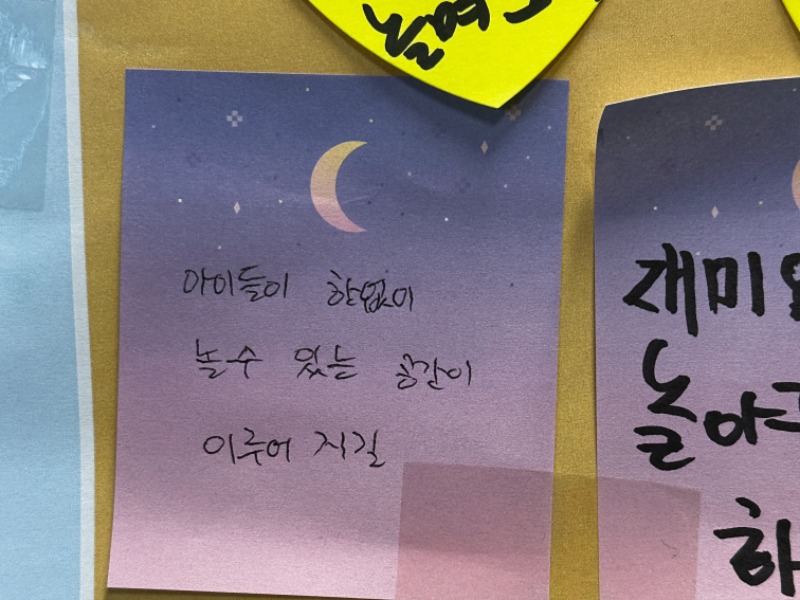 아이들이 한없이
놀수 있는 공간이
이루어 지길
재미
놀아
하